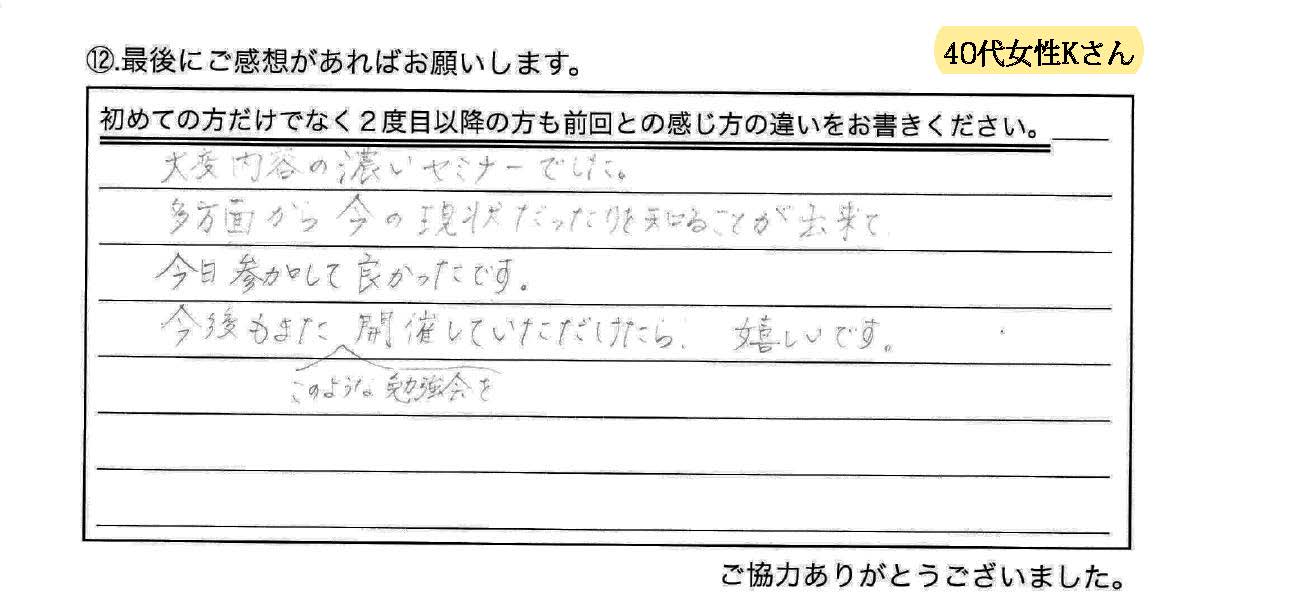 ⑫.最後にご感想があればお願いします。
40代女性Kさん
初めての方だけでなく２度目以降の方も前回との感じ方の違いをお書きください。
大変内容の濃いセミナーでした。
多方面から今の現状だったりを知ることが出来て
今日参加して良かったです。
今後もまた開催していただけたら、嬉しいです。
このような勉強会を
ご協力ありがとうございました。